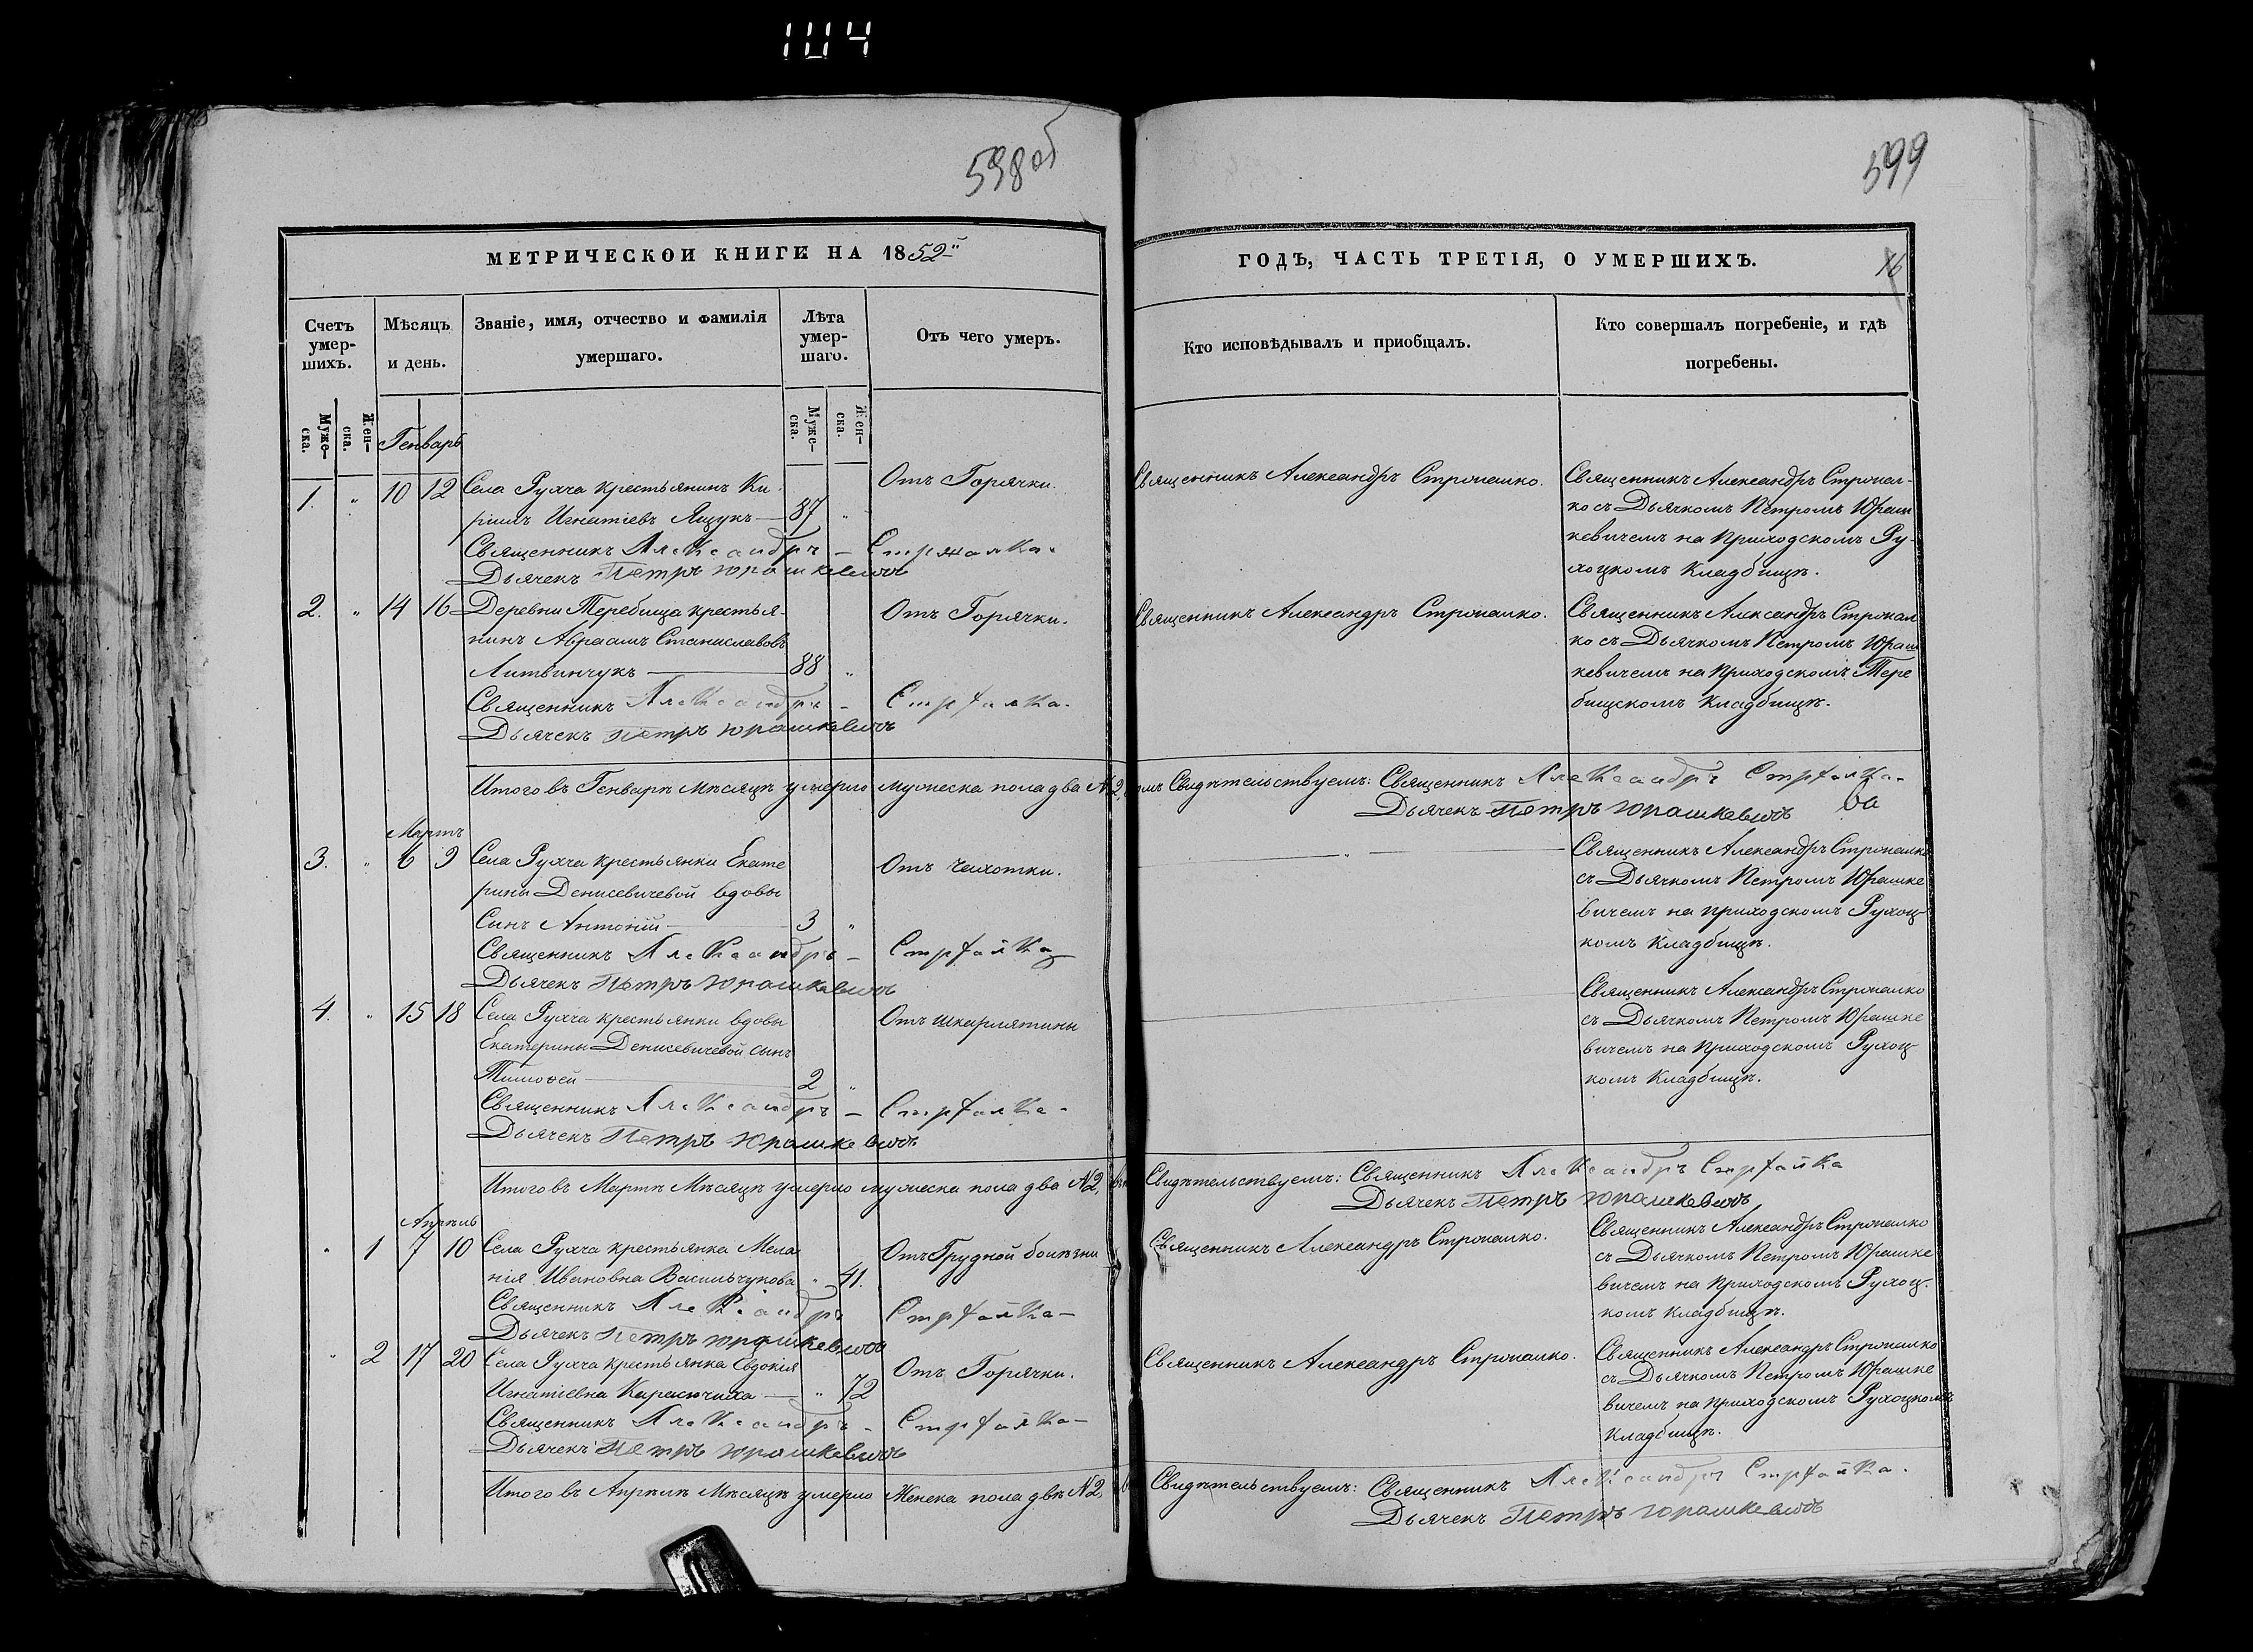 104
598об
599
МЕТРИЧЕСКОЙ КНИГИ НА 1852й
ГОДЪ, ЧАСТЬ ТРЕТІЯ, О УМЕРШИХЪ.
16
Счетъ умер-
шихъ.
Мѣсяцъ
и день.
Званіе, имя, отчество и фамилія
умершаго.
Лѣта
умер-
шаго.
Отъ чего умеръ.
Кто исповѣдывалъ и пріобщалъ.
Кто совершалъ погребеніе, и гдѣ
погребены.
Муже-
ска.
Жен-
ска.
Муже-
ска.
Жен-
ска.
Генварь
1. " 10 12 Села Рухча крестьянинъ Ки-
рилъ Игнатіевъ Ящукъ — 87 "
Отъ Горячки.
Священникъ Александръ — Стрпалка.
Дьячекъ Петръ Юрашкевичъ
Священникъ Александръ Стропалко.
Священникъ Александръ Стропал-
ко съ Дьячкомъ Петромъ Юраш
кевичемъ на приходскомъ Ру-
хоцкомъ Кладбищѣ.
2. " 14 16 Деревни Теребища крестья-
нинъ Авраамъ Станиславовъ
Литвинчукъ — 88 "
Отъ Горячки.
Священникъ Александръ — Стрпалка.
Дьячекъ Петръ Юрашкевичъ
Священникъ Александръ Стропалко.
Священникъ Александръ Стропал
ко съ Дьячкомъ Петромъ Юраш
кевичемъ на приходскомъ Тере
бищскомъ Кладбищѣ.
Итого въ Генварѣ Мѣсяцѣ умерло мужеска пола два №2,
Свидѣтельствуемъ: Священникъ Александръ Стрпалка
Дьячекъ Петръ Юрашкевичъ
Мартъ
3. " 6 9 Села Рухча крестьянки Екате
рины Денисевичевой вдовы
Сынъ Антоній — 3 "
Отъ Чахотки.
Священникъ Александръ — Стрпалка
Дьячекъ Петръ Юрашкевичъ
— " —
Священникъ Александръ Стропалко
съ Дьячкомъ Петромъ Юрашке
вичемъ на приходскомъ Рухоц-
комъ Кладбищѣ.
4. " 15 18 Села Рухча крестьянки вдовы
Екатерины Денисевичевой сынъ
Тимофей — 2 "
Отъ шкарлятины
Священникъ Александръ — Стрпалка
Дьячекъ Петръ Юрашкевичъ
Священникъ Александръ Стропалко
съ Дьячкомъ Петромъ Юрашке
вичемъ на приходскомъ Рухоц-
комъ Кладбищѣ.
Итого въ Мартѣ Мѣсяцѣ умерло мужеска пола два №2,
Свидѣтельствуемъ: Священникъ Александръ Стрпалка
Дьячекъ Петръ Юрашкевичъ
Апрѣль
" 1 7 10 Села Рухча крестьянка Мела
нія Ивановна Васильчукова " 41.
Отъ Грудной болѣзни
Священникъ Александръ Стрпалка —
Дьячекъ Петръ Юрашкевичъ
Священникъ Александръ Стропалко.
Священникъ Александръ Стропалко
съ Дьячкомъ Петромъ Юрашке
вичемъ на приходскомъ Рухоц-
комъ Кладбищѣ.
" 2 17 20 Села Рухча крестьянка Евдокія
Игнатіевна Карасючиха — " 72
Отъ Горячки.
Священникъ Александръ — Стрпалка —
Дьячекъ Петръ Юрашкевичъ
Священникъ Александръ Стропалко.
Священникъ Александръ Стропалко
съ Дьячкомъ Петромъ Юрашке
вичемъ на приходскомъ Рухоцкомъ
Кладбищѣ.
Итого въ Апрѣлѣ Мѣсяцѣ умерло Женска пола двѣ №2,
Свидѣтельствуемъ: Священникъ Александръ Стрпалка.
Дьячекъ Петръ Юрашкевичъ